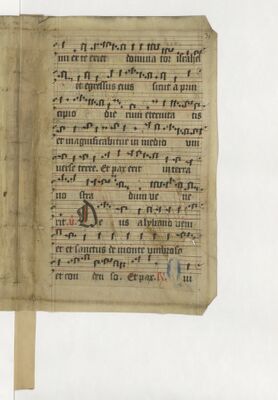 mi ex te exiet domina tor israhel
et egressus eius sicut a prin
cipio die rum eternita tis
et magnificabitur in medio uni
uerse terre. Et pax erit in terra
no stra dum ue ne
rit. V. De us a lybano veni
et et sanctus de monte umbroso
et con den so. Et pax. R.